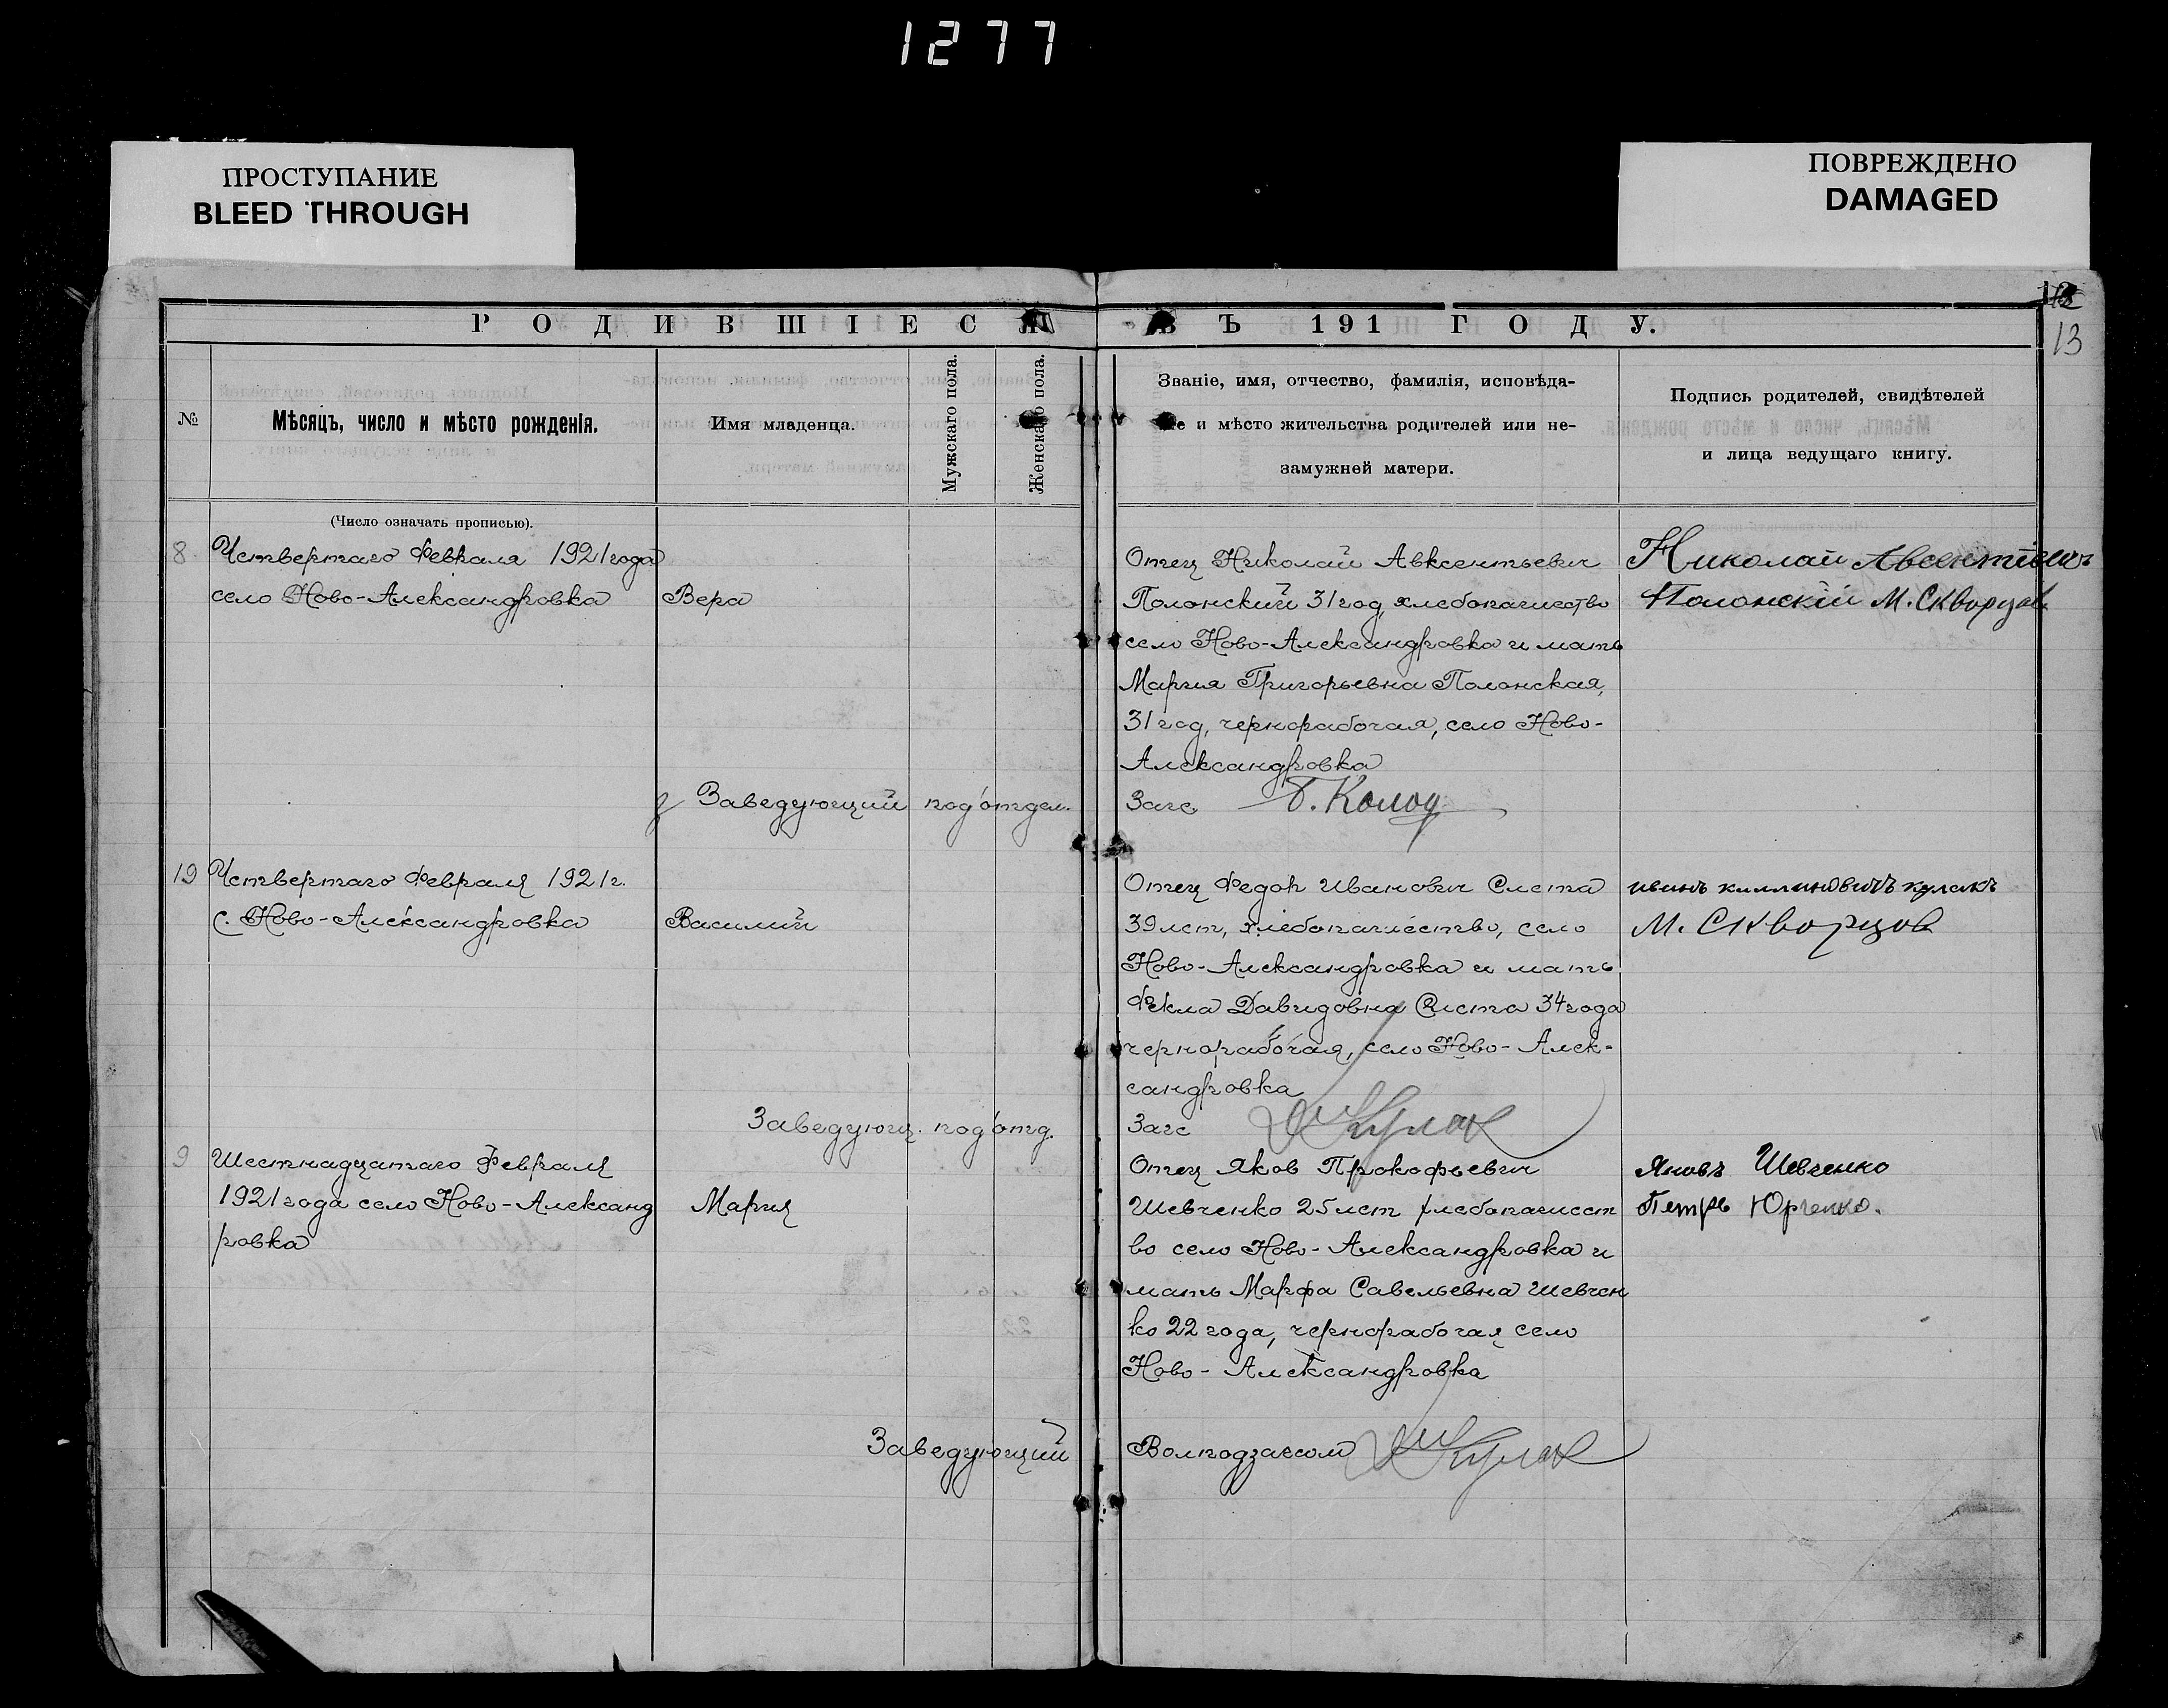 1277
ПРОСТУПАНИЕ
BLEED THROUGH
ПОВРЕЖДЕНО
DAMAGED
13
РОДИВШІЕСЯ ВЪ 191 ГОДУ.
№
Мѣсяцъ, число и мѣсто рожденія.
Имя младенца.
Мужскаго пола.
Женскаго пола.
Званіе, имя, отчество, фамилія, исповѣда-
ніе и мѣсто жительства родителей или не-
замужней матери.
Подпись родителей, свидѣтелей
и лица ведущаго книгу.
(Число означать прописью).
8 Четвертаго Февраля 1921 года
село Ново-Александровка
Вера
Отец Николай Авксентьевич
Полонский 31 год, хлебопашество
село Ново-Александровка и мать
Мария Григорьевна Полонская,
31 год, чернорабочая, село Ново-
Александровка
Николай Авсентіевичъ
Полонскій М. Скворцов
Заведующий под'отдел.
Загс
19 Четвертаго Февраля 1921 г.
с. Ново-Александровка
Василий
Отец Федор Иванович Слета
39 лет, хлебопашество, село
Ново-Александровка и мать
Фекла Давидовна Слета 34 года
чернорабочая, село Ново-Алек-
сандровка
М. Скворцов
Заведующ. под'отд.
Загс Кулак
9 Шестнадцатаго Февраля
1921 года село Ново-Александ
ровка
Мария
Отец Яков Прокофьевич
Шевченко 25 лет хлебопашест
во село Ново-Александровка и
мать Марфа Савельевна Шевчен
ко 22 года, чернорабочая село
Ново-Александровка
Яковъ Шевченко
Петръ Юрченко.
Заведующий
Волподзагсом Кулак